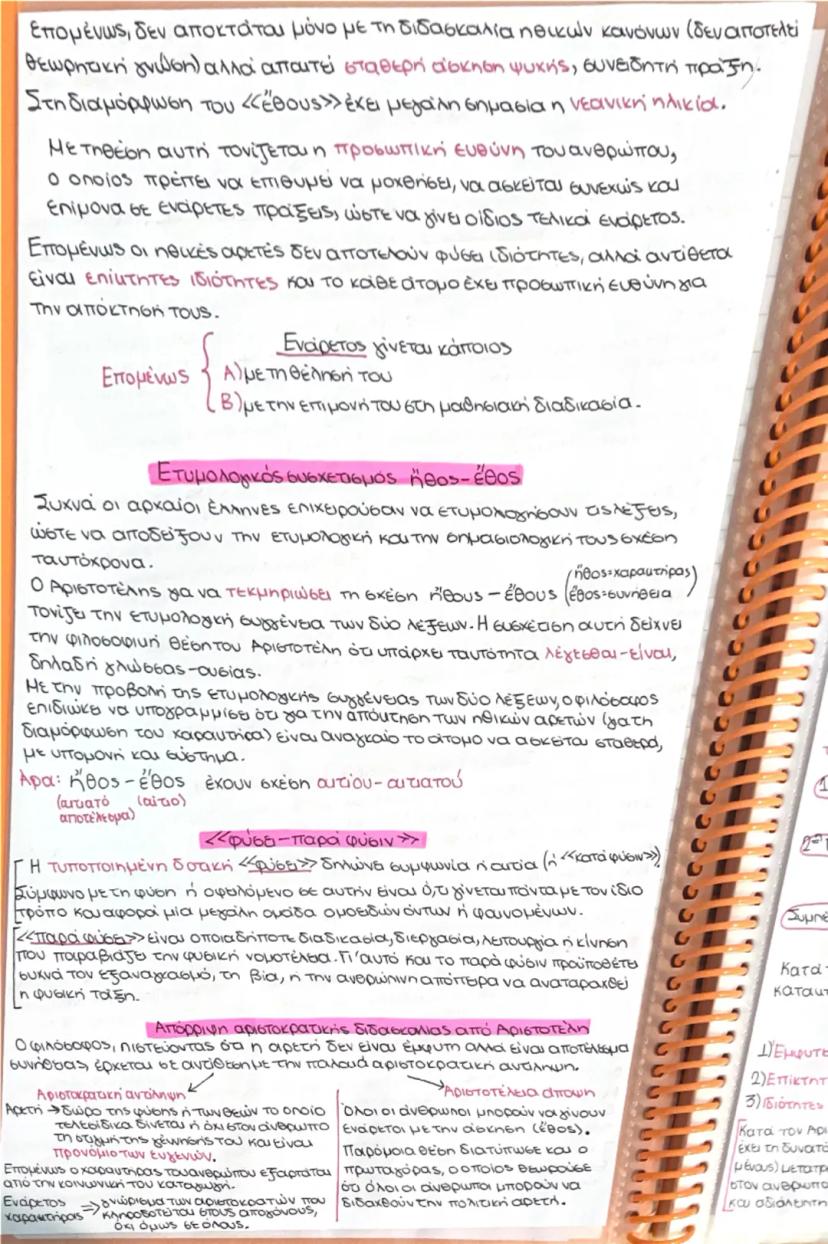 Επομένως, δεν αποκτάται μόνο με τη διδασκαλία ηθικών κανόνων (δεν αποτελεί
θεωρητική γνώση) αλλά απαιτεί σταθερή άσκηση ψυχής, συνειδητή πράξη.
Στη διαμόρφωση του <<ἔθους>> έχει μεγάλη σημασία η νεανική ηλικία.
Με τη θέση αυτή τονίζεται η προσωπική ευθύνη του ανθρώπου,
ο οποίος πρέπει να επιθυμεί να μοχθήσει, να ασκείται συνεχώς και
επίμονα σε ενάρετες πράξεις, ώστε να γίνει ο ίδιος τελικά ενάρετος.
Επομένως οι ηθικές αρετές δεν αποτελούν φύσει ιδιότητες, αλλά αντίθετα
είναι επίκτητες ιδιότητες και το κάθε άτομο έχει προσωπική ευθύνη για
την απόκτησή τους.
Ενάρετος γίνεται κάποιος
Επομένως Α) με τη θέλησή του
Β) με την επιμονή του στη μαθησιακή διαδικασία.
Ετυμολογικός συσχετισμός ἦθος-ἔθος
Συχνά οι αρχαίοι έλληνες επιχειρούσαν να ετυμολογήσουν τις λέξεις,
ώστε να αποδείξουν την ετυμολογική και την σημασιολογική τους σχέση
ταυτόχρονα.
Ο Αριστοτέλης για να τεκμηριώσει τη σχέση ἤθους-ἔθους (ἦθος=χαρακτήρας)
(ἔθος=συνήθεια)
τονίζει την ετυμολογική συγγένεια των δύο λέξεων. Η συσχέτιση αυτή δείχνει
την φιλοσοφική θέση του Αριστοτέλη ότι υπάρχει ταυτότητα λέγεσθαι-είναι,
δηλαδή γλώσσας-ουσίας.
Με την προβολή της ετυμολογικής συγγένειας των δύο λέξεων, ο φιλόσοφος
επιδιώκει να υπογραμμίσει ότι για την απόκτηση των ηθικών αρετών (για τη
διαμόρφωση του χαρακτήρα) είναι αναγκαίο το άτομο να ασκείται σταθερά,
με υπομονή και σύστημα.
Άρα: ἦθος-ἔθος έχουν σχέση αιτίου-αιτιατού
(αιτιατό (αίτιο)
αποτέλεσμα)
<<φύσει-παρά φύσιν>>
Η τυποποιημένη δοτική <<φύσει>> δηλώνει συμφωνία ή αιτία (ή <<κατά φύσιν>>)
Σύμφωνο με τη φύση ή οφειλόμενο σε αυτήν είναι ό,τι γίνεται πάντα με τον ίδιο
τρόπο και αφορά μία μεγάλη ομάδα ομοειδών όντων ή φαινομένων.
<<παρά φύσει>> είναι οποιαδήποτε διαδικασία, διεργασία, λειτουργία ή κίνηση
που παραβιάζει την φυσική νομοτέλεια. Γι'αυτό και το παρά φύσιν προϋποθέτει
συχνά τον εξαναγκασμό, τη βία, ή την ανθρώπινη απόπειρα να αναταραχθεί
η φυσική τάξη.
Απόρριψη αριστοκρατικής διδασκαλίας από Αριστοτέλη
Ο φιλόσοφος, πιστεύοντας ότι η αρετή δεν είναι έμφυτη αλλά είναι αποτέλεσμα
συνήθειας, έρχεται σε αντίθεση με την παλαιά αριστοκρατική αντίληψη.
Αριστοκρατική αντίληψη
Αρετή → δώρο της φύσης ή των θεών το οποίο
τελεσίδικα δίνεται ή όχι στον άνθρωπο
τη στιγμή της γέννησής του και είναι
προνόμιο των ευγενών.
Επομένως ο χαρακτήρας του ανθρώπου εξαρτάται
από την κοινωνική του καταγωγή.
Ενάρετος ⇒ γνώρισμα των αριστοκρατών που
χαρακτήρας κληροδοτείται στους απογόνους,
όχι όμως σε όλους.
Αριστοτέλεια άποψη
Όλοι οι άνθρωποι μπορούν να γίνουν
ενάρετοι με την άσκηση (ἔθος).
Παρόμοια θέση διατύπωσε και ο
πρωταγόρας, ο οποίος θεωρούσε
ότι όλοι οι άνθρωποι μπορούν να
διδαχθούν την πολιτική αρετή.
1
2
Συμπέ
Κατά
1) Έμφυτε
2) Επίκτητ
3) Ιδιότητες
Κατά τον Αρι
έχει τη δυνατό
μένους) μετατρ
στον άνθρωπο
και αδιάλειπτη